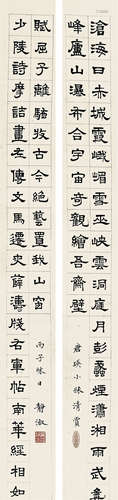 滄海日赤城霞峨眉雪巫峽雲洞庭月彭蠡煙瀟湘雨武夷
峰廬山瀑布合宇宙奇觀繪吾齋壁
君瑛小妹清賞
少陵詩摩詰畫左傳文馬遷史薛濤牋右軍帖南華經相如
賦屈子離騷收古今絕藝置我山窗
丙子秋日 靜淑